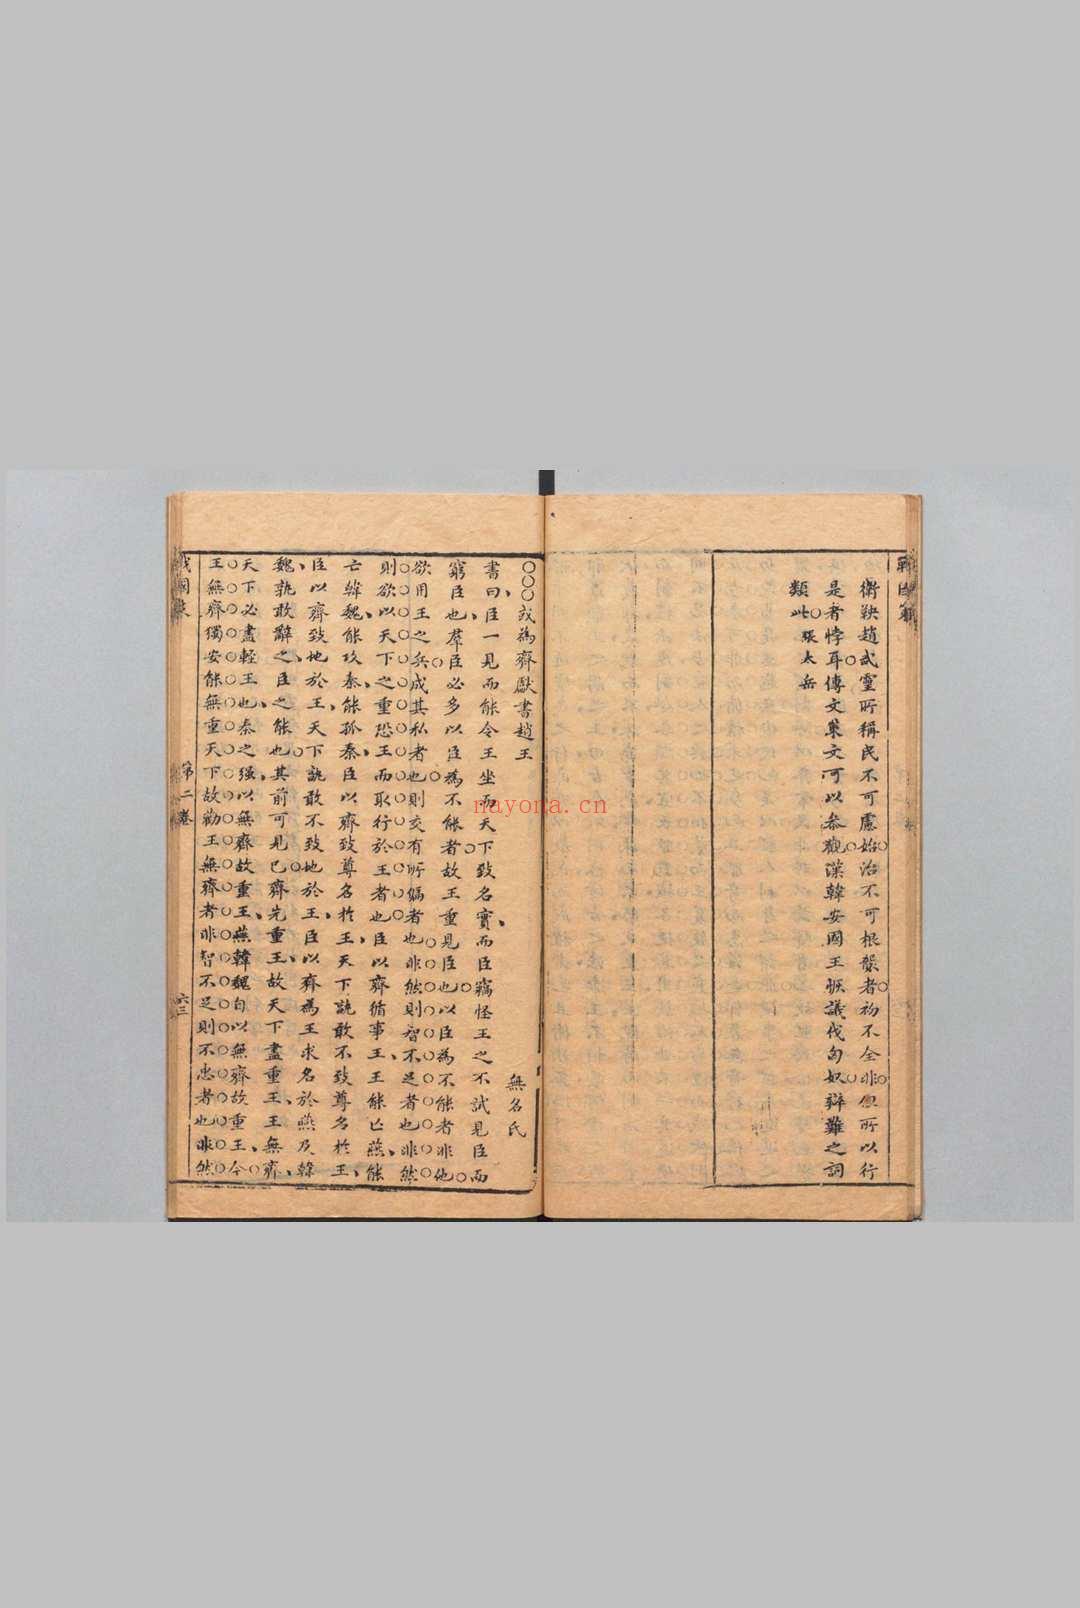 衛鞅趙武靈所稱民不可慮始治不可根襲者初不全非但所以行
是者悖耳傳文策文可以參觀漢韓安國王恢議伐匈奴辯難之詞
類此張太岳
○○○或為齊獻書趙王
無名氏
書曰臣一見而能令王坐而天下致名寶而臣竊怪王之不試見臣而
窮臣也羣臣必多以臣為不能者故王重見臣也以臣為不能者非他
欲用王之兵成其私者也則交有所偏者也非然則智不足者也非然
則欲以天下之重恐王而取行於王者也臣以齊循事王王能亡燕能
亡韓魏能攻秦能孤秦臣以齊致尊名於王天下孰敢不致尊名於王
臣以齊致地於王天下孰敢不致地於王臣以齊為王求名於燕及韓
魏孰敢辭之臣之能也其前可見已齊先重王故天下盡重王王無齊
天下必盡輕王也秦之强以無齊故重王燕韓魏自以無齊故重王今
王無齊獨安能無重天下故勸王無齊者非智不足則不忠者也非然
戰國策
第二卷
六三
nayona.cn